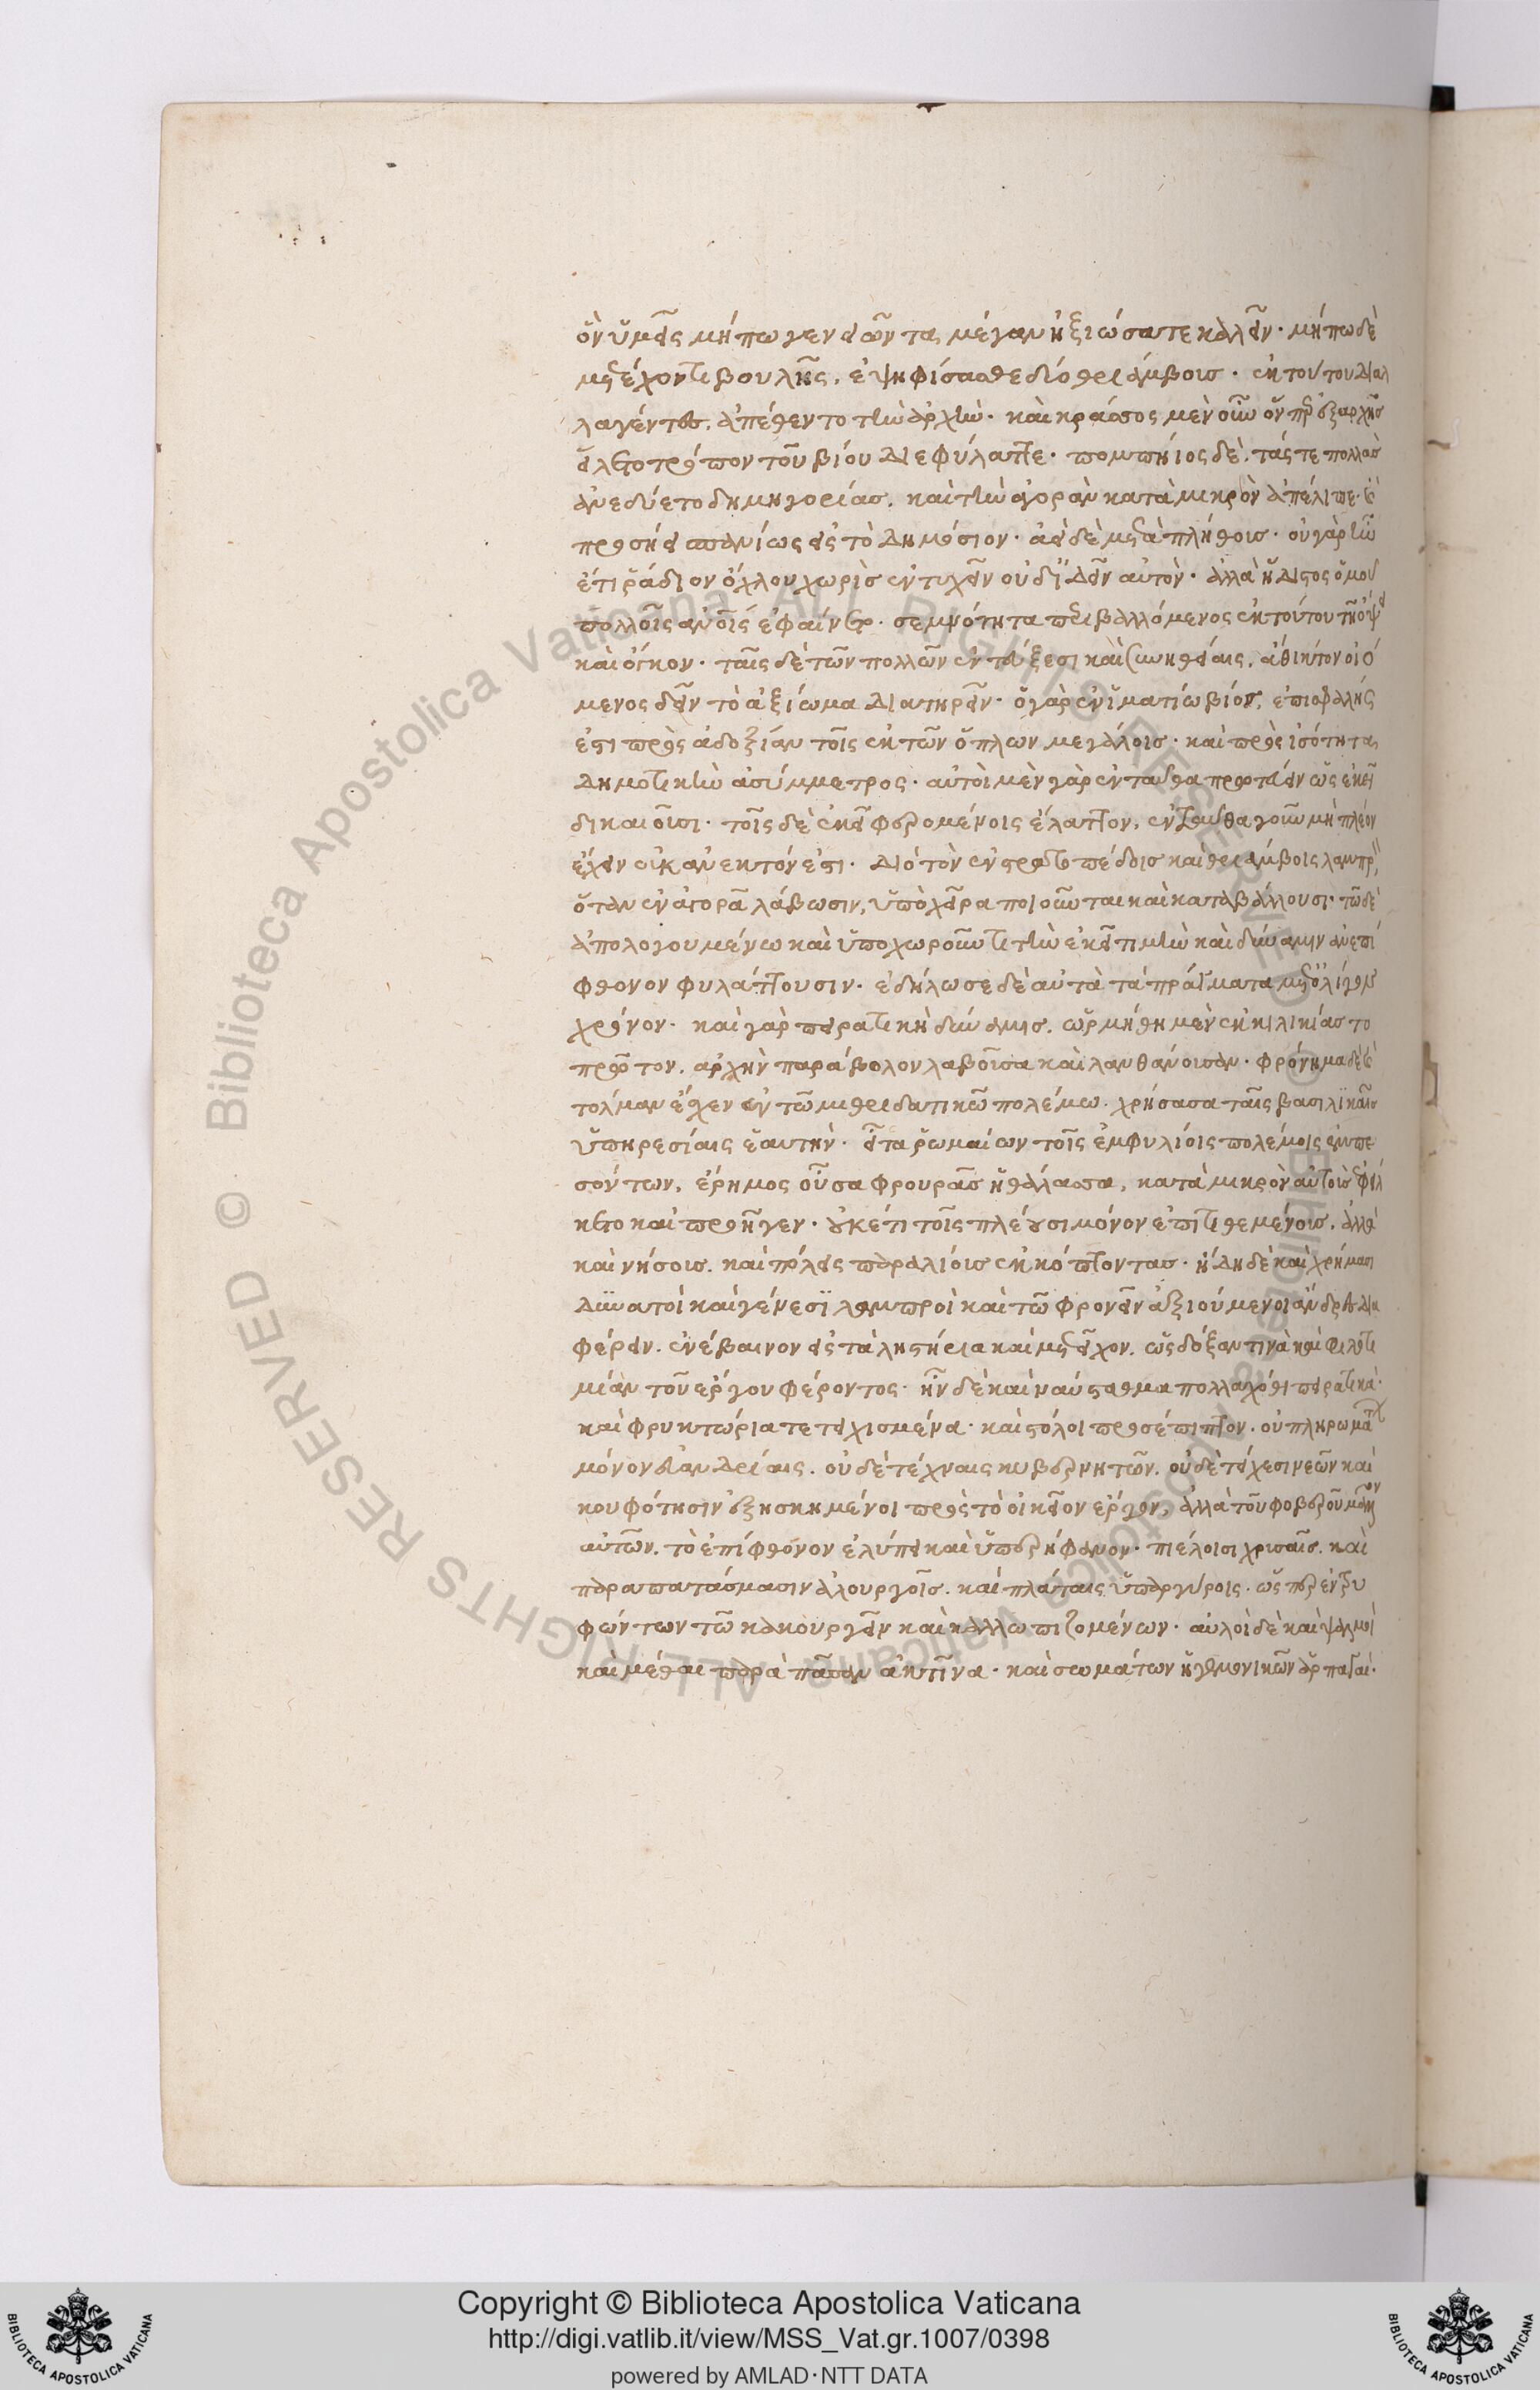 ὃν ὑμεῖς μήπω γενειῶντα, μέγαν ἠξιώσατε καλεῖν· μήπω δὲ
μετέχοντι βουλῆς, ἐψηφίσασθε δύο θριάμβοις· ἐκ τούτου διαλ
λαγέντες, ἀπέθεντο τὴν ἀρχήν· καὶ κράσσος μὲν οὖν ὅνπερ ἐξαρχῆς
εἵλετο τρόπον τοῦ βίου διεφύλαττε· πομπήιος δὲ, τάς τε πολλὰς
ἀνεδύετο δημηγορίας, καὶ τὴν ἀγορὰν κατὰ μικρὸν ἀπέλιπε· καὶ
προσήει σπανίως εἰς τὸ δημόσιον· ἀεὶ δὲ μετὰ πλήθοις· οὐ γὰρ ἦν
ἔτι ῥάδιον ὄχλου χωρὶς ἐντυχεῖν οὐδ' ἰδεῖν αὐτὸν· ἀλλὰ ἥδιστος ὁμοῦ
πολλοῖς αὐτοῖς ἐφαίνετο· σεμνότητα περιβαλλόμενος ἐκ τούτου τῇ ὄψει
καὶ ὄγκον· ταῖς δὲ τῶν πολλῶν ἐντεύξεσι καὶ συνηθείαις, ἄθικτον οἰό
μενος δεῖν τὸ ἀξίωμα διατηρεῖν· ὁ γὰρ ἐν ἱματίω βίος, ἐπισφαλής
ἐστι πρὸς ἀδοξίαν τοῖς ἐκ τῶν ὅπλων μεγάλοις· καὶ πρὸς ἰσότητα
δημοτικὴν ἀσύμμετρος· αὐτοὶ μὲν γὰρ ἐνταῦθα πρωτεύειν ὡς ἐκεῖ
δικαιοῦσι· τοῖς δὲ ἐκεῖ φερομένοις ἔλαττον, ἐνταῦθα γοῦν μὴ πλέον
ἔχειν οὐκ ἀνεκτόν ἐστι· διὸ τὸν ἐν στρατοπέδοις καὶ θριάμβοις λαμπρὸν
ὅταν ἐν ἀγορᾶ λάβωσιν, ὑπὸ χεῖρα ποιοῦνται καὶ καταβάλλουσι· τῶ δὲ
ἀπολογουμένω καὶ ὑποχωροῦντι τὴν ἐκεῖ τιμὴν καὶ δύναμιν ἀνεπί
φθονον φυλάττουσιν· ἐδήλωσε δὲ αὐτὰ τὰ πράγματα μετ' ὀλίγον
χρόνον· καὶ γὰρ πειρατικὴ δύναμις, ὡρμήθη μὲν ἐκ κιλικίας το
πρῶτον, ἀρχὴν παράβολον λαβοῦσα καὶ λανθάνουσαν· φρόνημα δὲ καὶ
τολμαν ἔσχεν ἐν τῶ μιθριδατικῶ πολέμω· χρήσασα ταῖς βασιλικαῖς
ὑπηρεσίαις ἑαυτήν· εἶτα ῥωμαίων τοῖς ἐμφυλίοις πολέμοις ἐμπε
σόντων, ἔρημος οὖσα φρουρᾶς ἡ θάλασσα, κατὰ μικρὸν αὐτοὺς ἐφείλ
κετο καὶ προῆγεν· οὐκέτι τοῖς πλέουσι μόνον ἐπιτιθεμένοις, ἀλλὰ
καὶ νήσοις, καὶ πόλεις παραλίοις ἐκκόπτοντας· ἤδη δὲ καὶ χρήμασι
δυνατοὶ καὶ γένεσι λαμπροὶ καὶ τῶ φρονεῖν ἀξιούμενοι ἄνδρες δια
φέρειν, ἐνέβαινον εἰς τὰ ληστήρια καὶ μετεῖχον, ὡς δόξαν τινὰ καὶ φιλοτι
μίαν τοῦ ἔργου φέροντος· ἦν δὲ καὶ ναύσταθμα πολλαχόθι πειρατικὰ·
καὶ φρυκτώρια τετειχισμένα· καὶ στόλοι προσέπιπτον, οὐ πληρωμάτων
μόνον εὐανδρίαις, οὐδὲ τέχναις κυβερνητῶν, οὐδὲ τάχεσι νεῶν καὶ
κουφότησιν ἐξησκημένοι πρὸς τὸ οἰκεῖον ἔργον, ἀλλὰ τοῦ φοβεροῦ μᾶλλον
αὐτῶν, τὸ ἐπίφθονον ἐλύπει καὶ ὑπερήφανον· στυλίσι χρυσαῖς, καὶ
παραπατάσμασιν ἁλουργοῖς, καὶ πλάταις ὑπαργύροις, ὥσπερ ἐντρυ
φώντων τῶ κακουργεῖν καὶ καλλωπιζομένων· αὐλοὶ δὲ καὶ ψαλμοὶ
καὶ μέθαι παρὰ πᾶσαν ἀκτῖνα· καὶ σωμάτων ἡγεμονικῶν ἁρπαγαὶ·
© Biblioteca Apostolica Vaticana ALL RIGHTS RESERVED © Biblioteca Apostolica Vaticana ALL RIGHTS RESERVED
Copyright © Biblioteca Apostolica Vaticana
http://digi.vatlib.it/view/MSS_Vat.gr.1007/0398
powered by AMLAD·NTT DATA
BIBLIOTECA APOSTOLICA VATICANA
BIBLIOTECA APOSTOLICA VATICANA